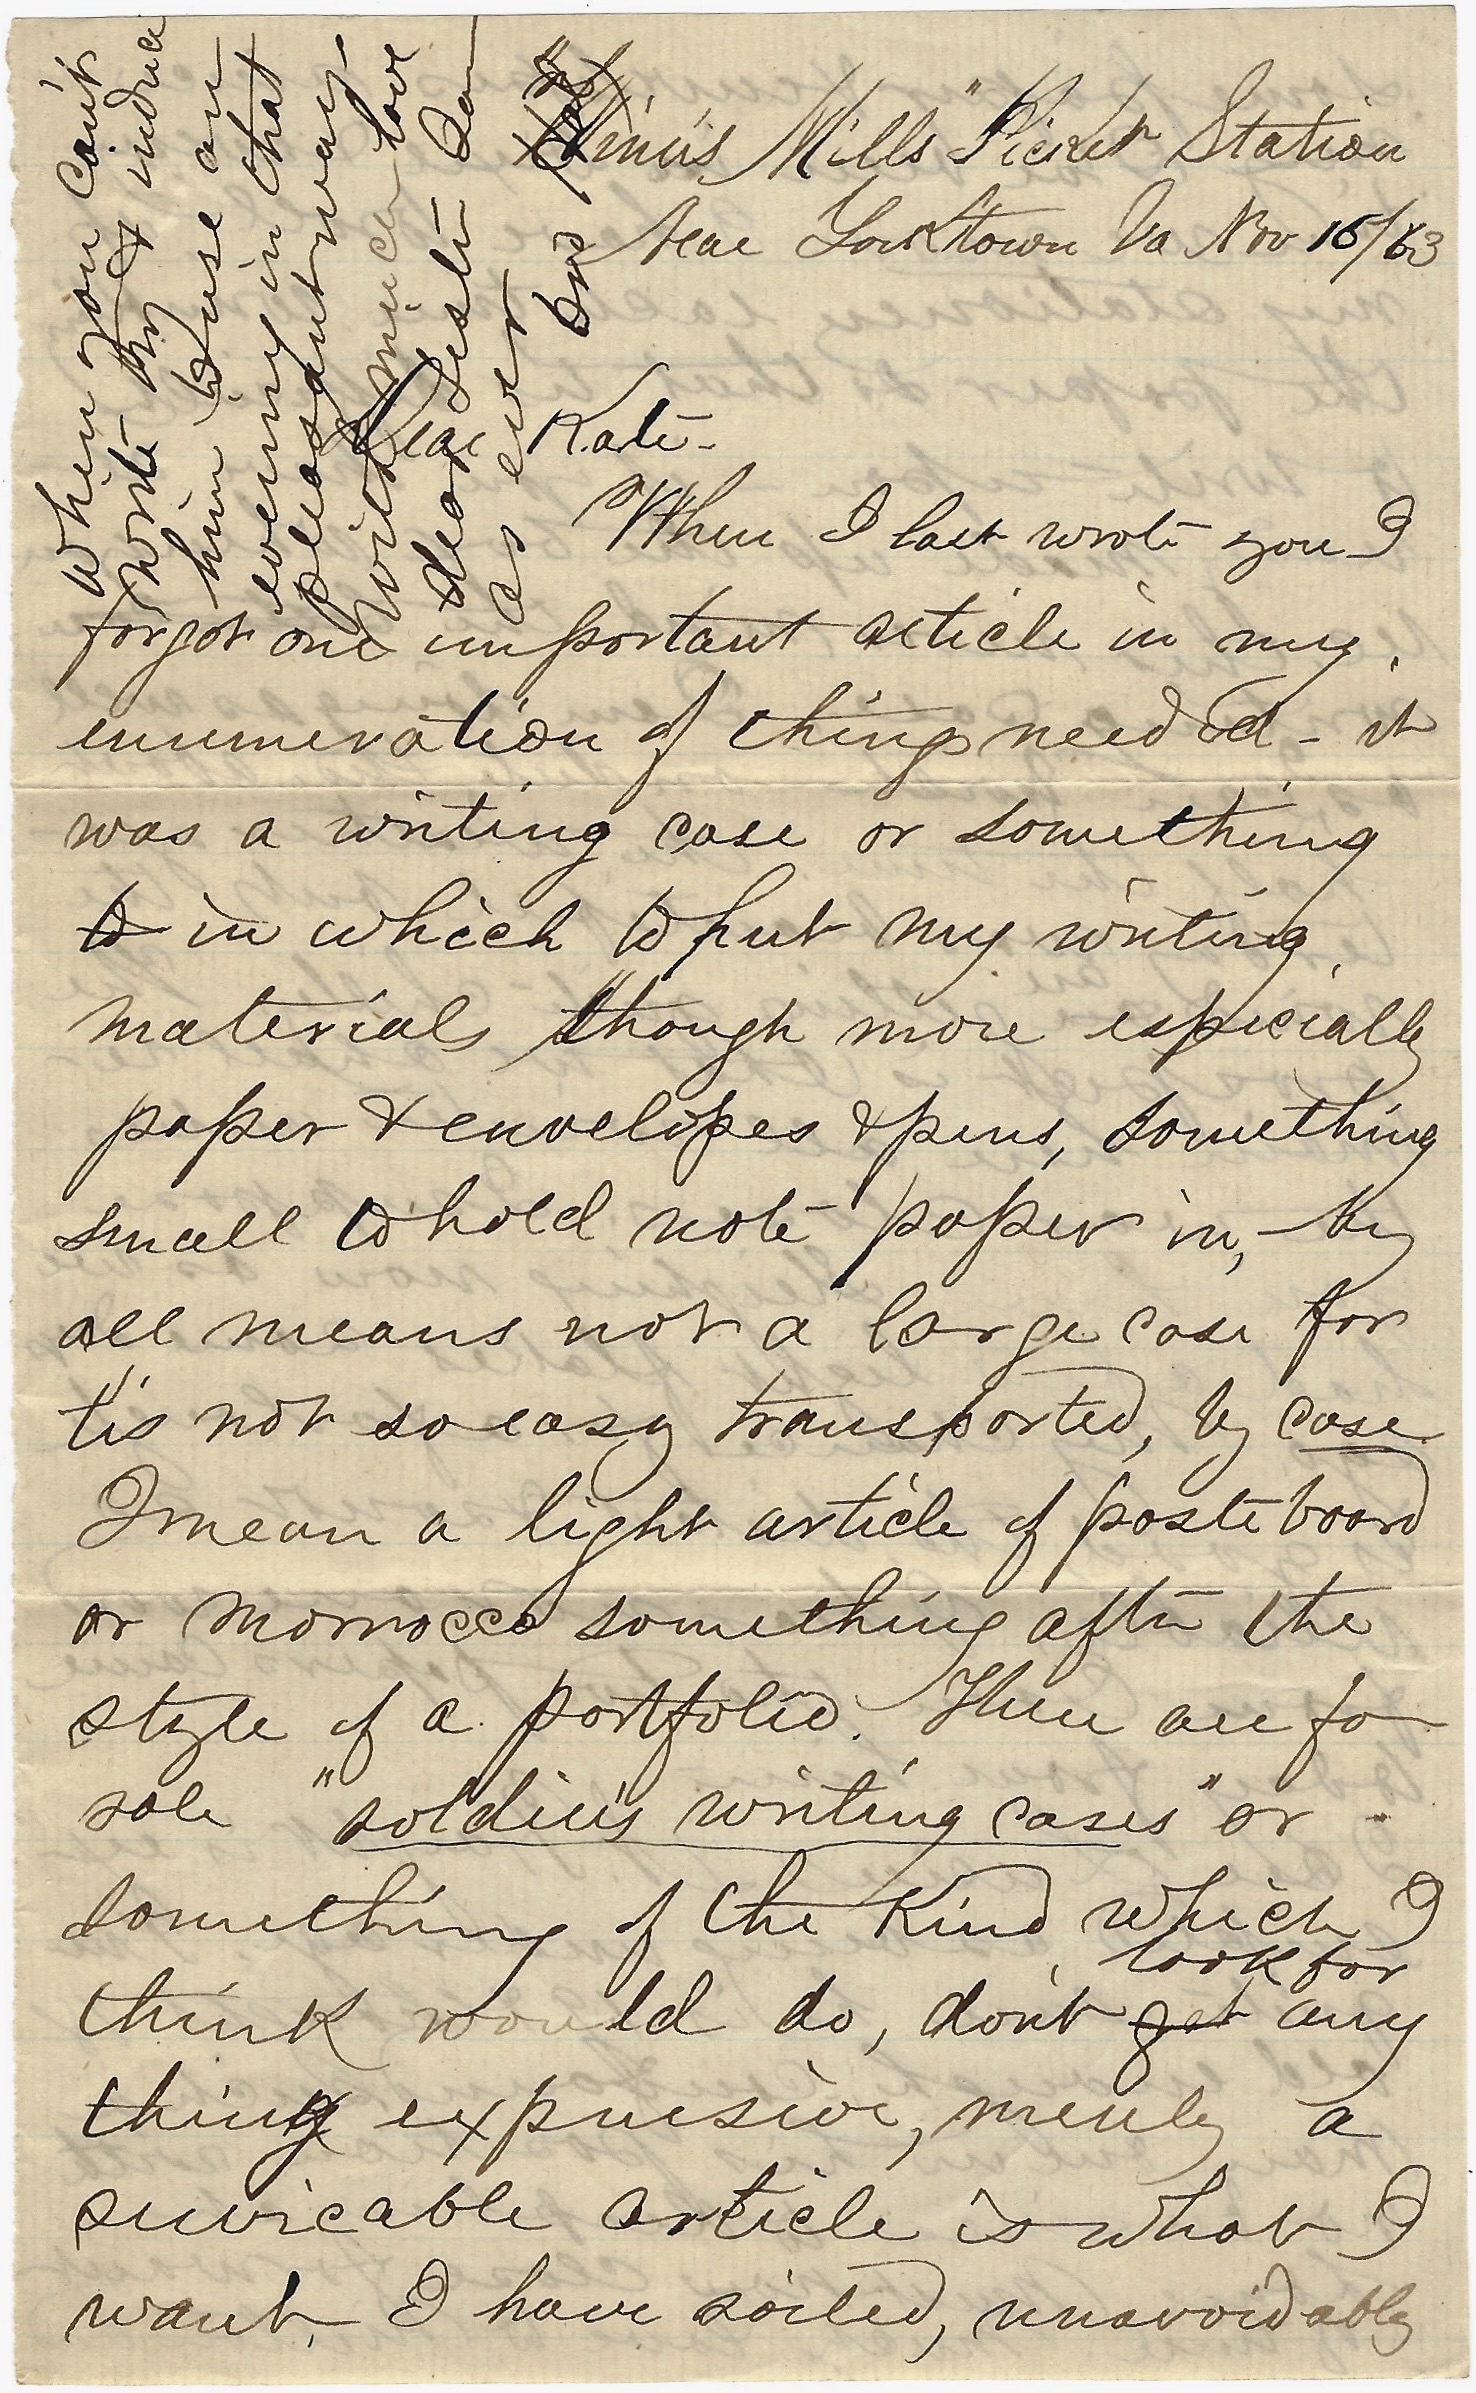 Mills" Picket Station
Near Yorktown Va Nov 15/63
Dear Kate-
When I last wrote you I
forgot one important article in my
enumeration of things needed - it
was a writing case or something
to in which to put my writing
materials though more especially
paper & envelopes & pens, something
small to hold note paper in, - by
all means not a large case for
t'is not so easy transported, by case
I mean a light article of pasteboard
or morrocco something after the
style of a portfolio. There are for
sale "soldier's writing cases" or
something of the kind which I
look for
think would do, don't get any
thing expensive, merely a
servicable article is what I
want. I have soiled, unavoidably
When you can't
write try & induce
him to use an
evening in that
pleasant way-
With much love
dear Sister I am
as ever
Bro